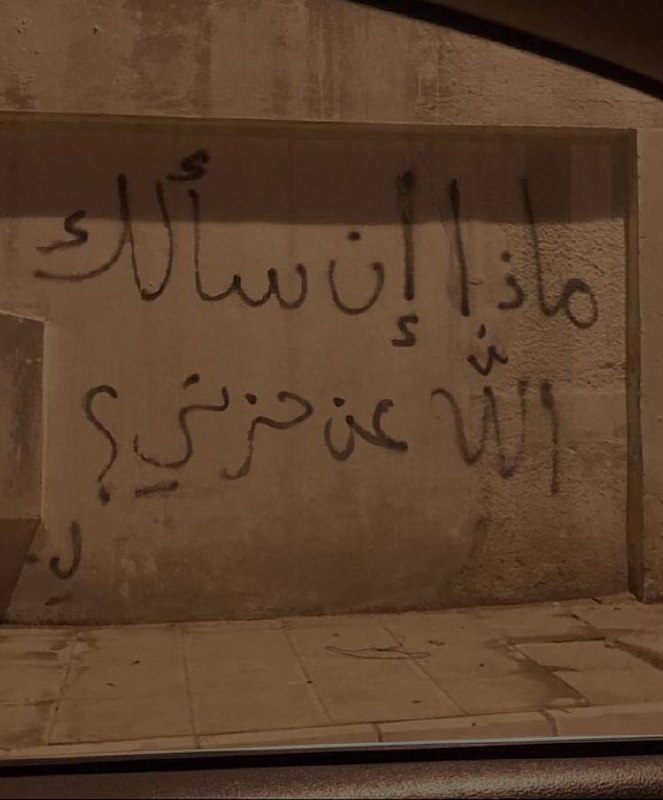 ماذا إن سألك
اللّٰه عن حزني؟